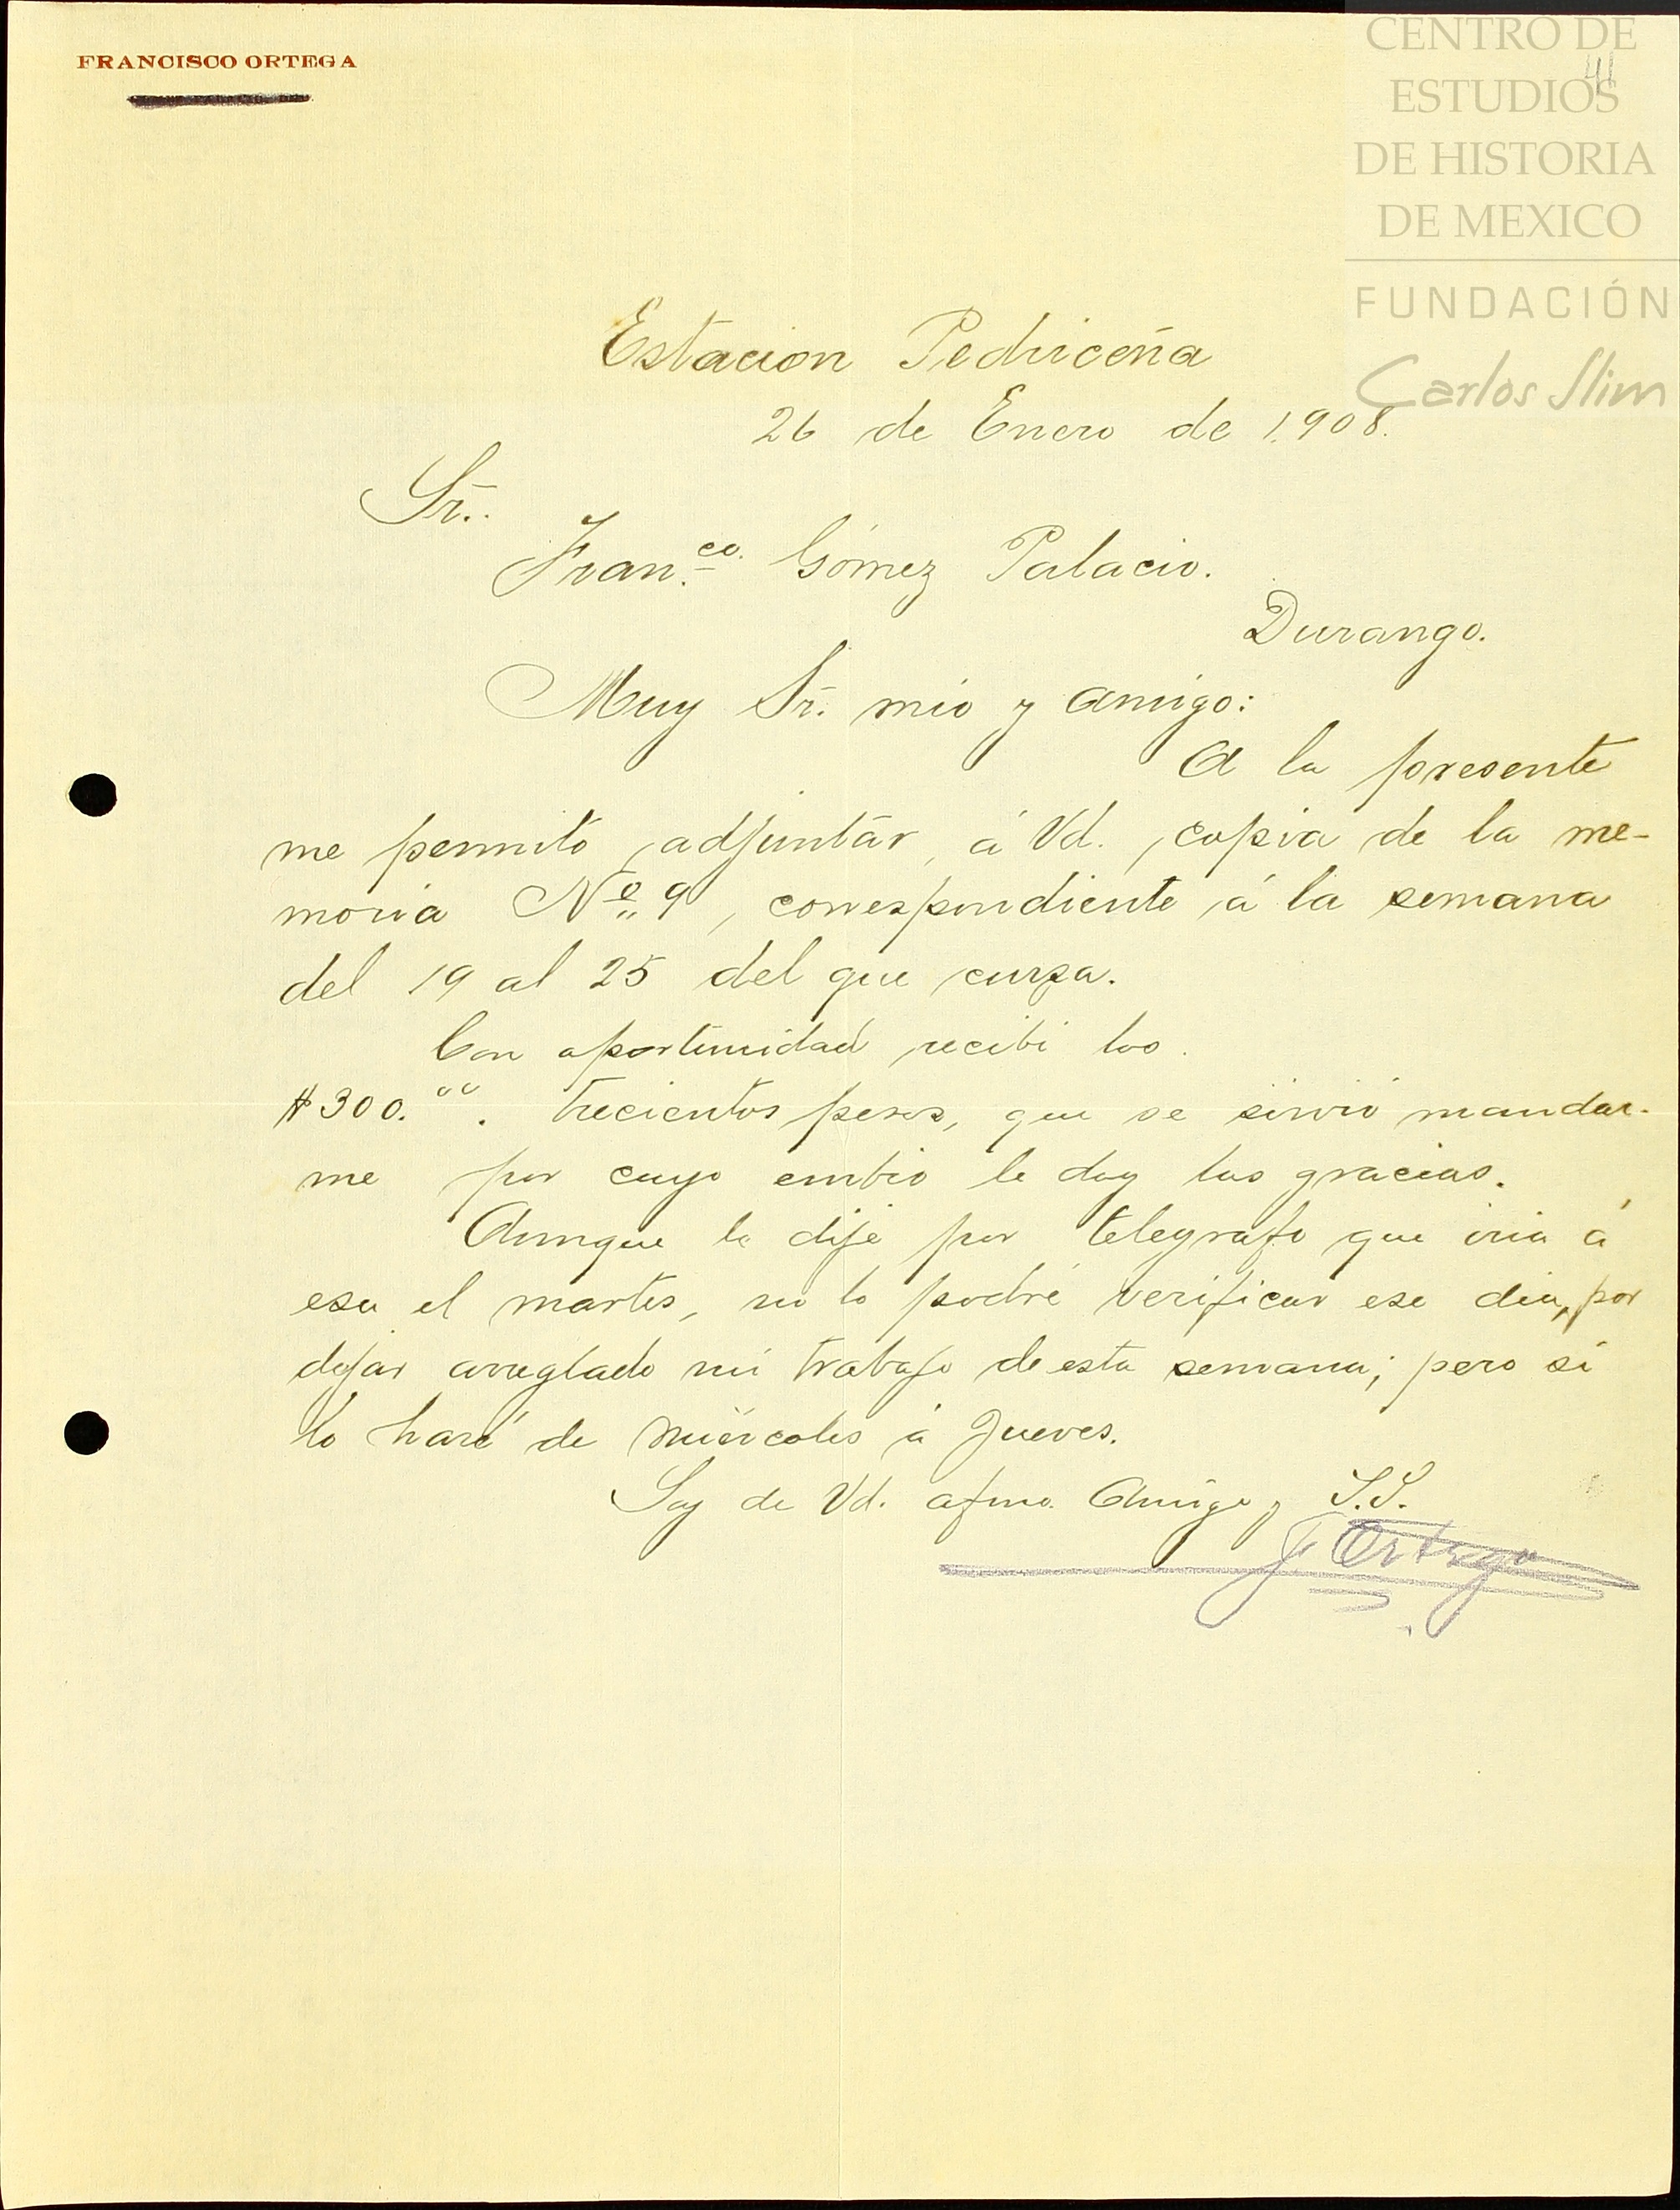 FRANCISCO ORTEGA
CENTRO DE
ESTUDIOS
DE HISTORIA
DE MEXICO
FUNDACIÓN
Carlos Slim
41
Estacion Pedriceña
26 de Enero de 1.908.
Sr..
Fran.co Gómez Palacio.
Durango.
Muy Sr. mio y amigo:
A la presente
me permito adjuntar, á Vd., copia de la me-
moria No. 9, correspondiente á la semana
del 19 al 25 del que cursa.
Con oportunidad recibi los
$300.oo. trecientos pesos, que se sirvió mandar-
me por cuyo embio le doy las gracias.
Aunque le dije por telegrafo que iria á
esa el martes, no lo podré verificar ese dia, por
dejar arreglado mi trabajo de esta semana; pero si
lo haré de Miercoles á Jueves.
Soy de Vd. afmo. Amigo y S.S.
F Ortega